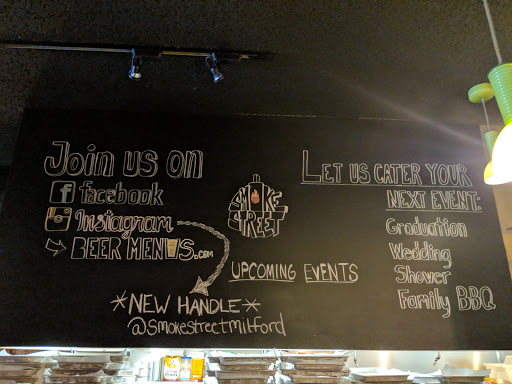 Join us on
facebook
Instagram
BEER MENUS.com
*NEW HANDLE*
@smokestreetmilford
SMOKE
STREET
UPCOMING EVENTS
LET US CATER YOUR
NEXT EVENT:
Graduation
Wedding
Shower
Family BBQ